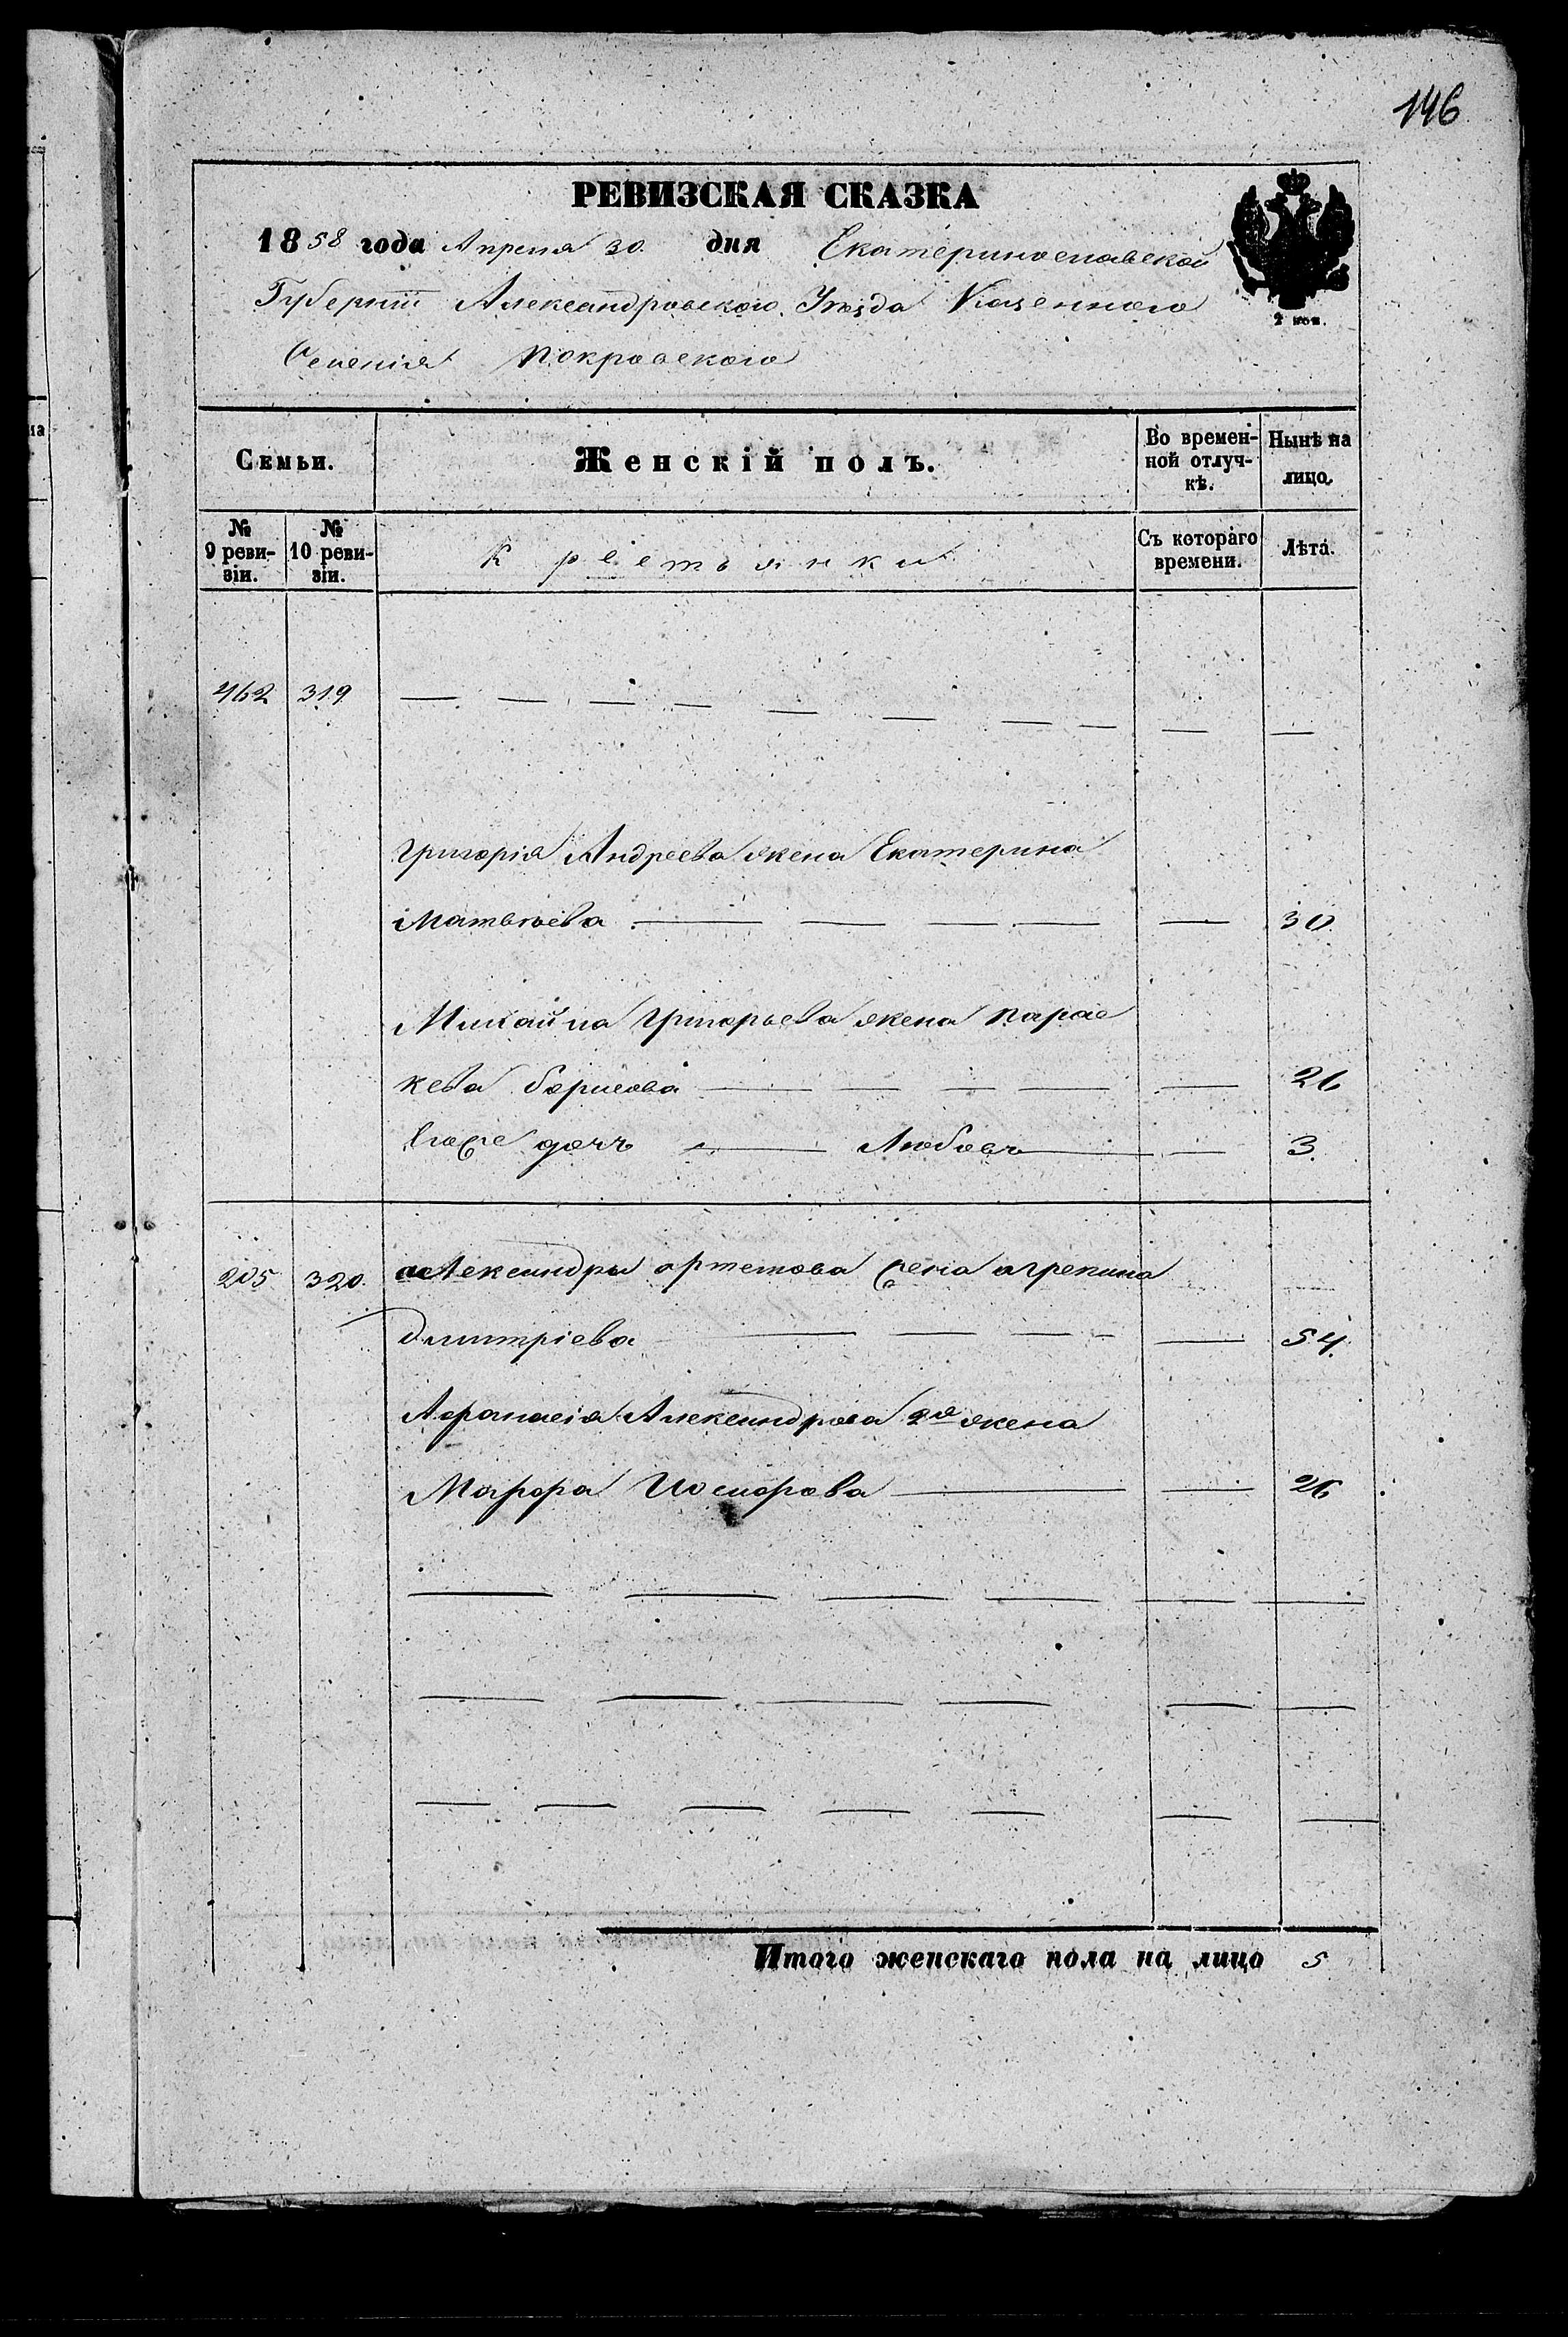 146
РЕВИЗСКАЯ СКАЗКА
1858 года Апреля 30 дня Екатеринославской
Губерніи Александровского Уѣзда Казенного
Селенія Покровского
2 коп.
Семьи. Женскій полъ. Во времен-ной отлуч-кѣ. Нынѣ на лицо.
№ 9 реви-зіи. № 10 реви-зіи. Крестьянки Съ котораго времени. Лѣта.
462 319
Григорія Андреева жена Екатерина
Матвѣева 30
Михайла Григорьева жена Парас
кева Борисова 26
Ево же дочь Любовь 3.
205 320. Александра Артемова жена Агрепина
Дмитріева 54.
Афанасія Александрова 2я жена
Марфа 26
Итого женскаго пола на лицо 5